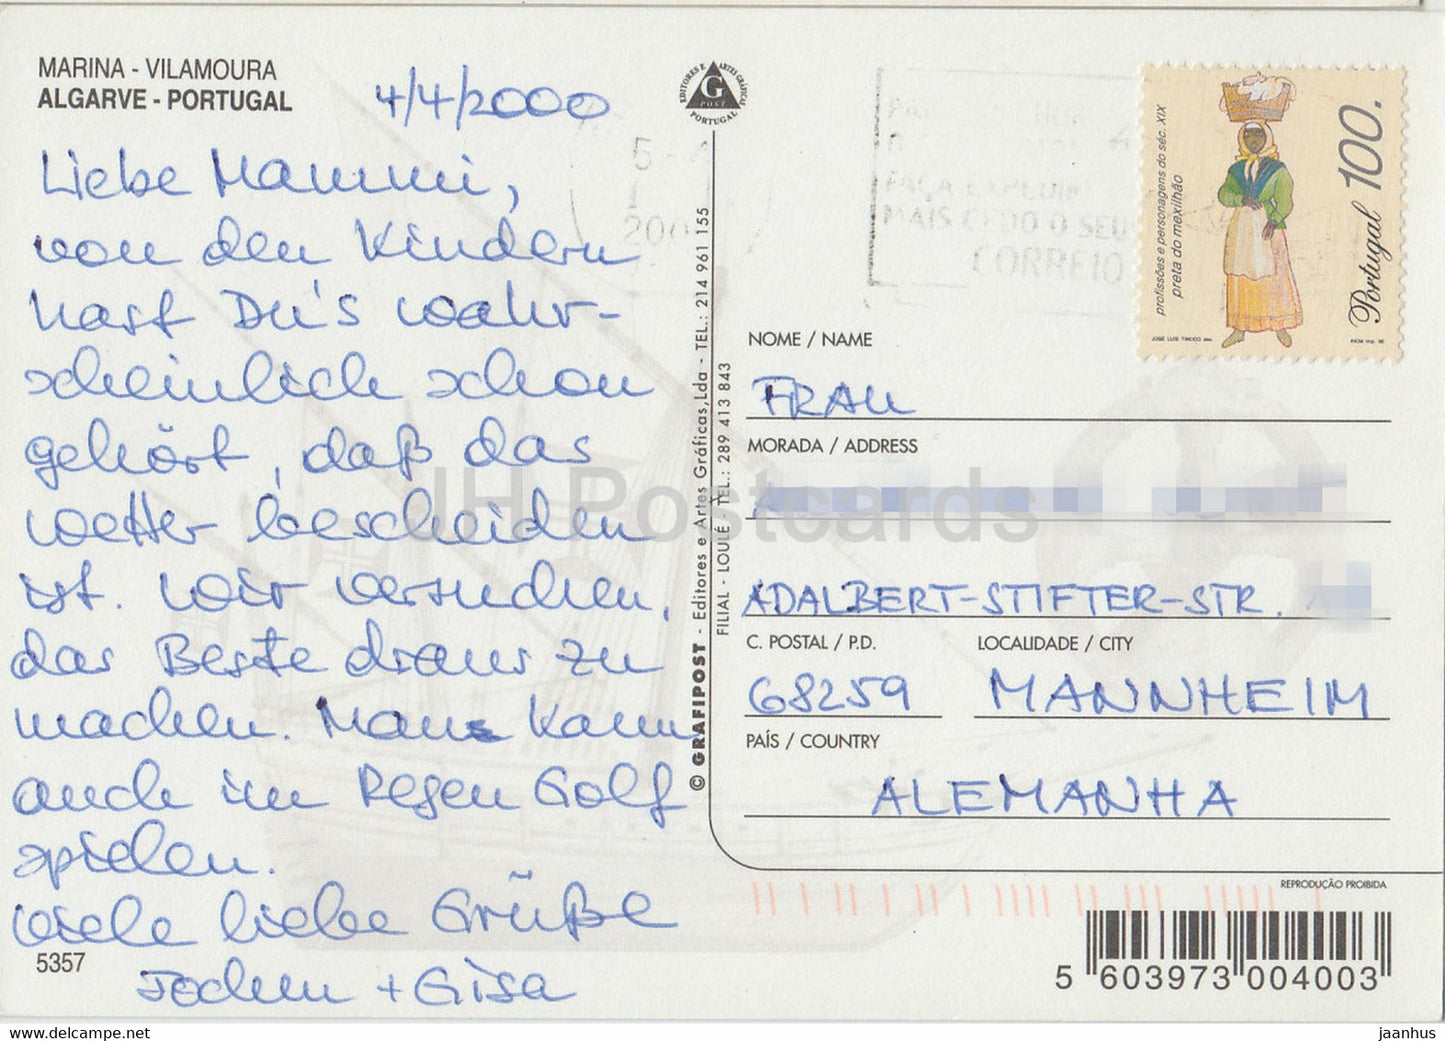 MARINA - VILAMOURA
ALGARVE - PORTUGAL
4/4/2000
Liebe Mammi,
von den Kindern
hast Du's wahr-
scheinlich schon
gehört, daß das
Wetter bescheiden
ist. Wir versuchen,
das Beste draus zu
machen. Man kann
auch im Regen Golf
spielen.
Viele liebe Grüße
Jochen + Gisa
5357
EDITORES E ARTES GRÁFICAS
G
POST
PORTUGAL
© GRAFIPOST - Editores e Artes Gráficas,Lda - TEL.: 214 961 155
FILIAL - LOULÉ TEL.: 289 413 843
5
200
FAÇA EXPEDIR
MAIS CEDO O SEU
CORREIO
profissões e personagens do séc. XIX
preta do mexilhão
Portugal 100.
JOSÉ LUÍS TINOCO des.
INCM imp. 96
NOME / NAME
FRAU
MORADA / ADDRESS
ADALBERT-STIFTER-STR.
C. POSTAL / P.D.
LOCALIDADE / CITY
68259 MANNHEIM
PAÍS / COUNTRY
ALEMANHA
REPRODUÇÃO PROIBIDA
5 603973 004003
JH Postcards
https://www.ebay.com/usr/jaanhus
jaanhus